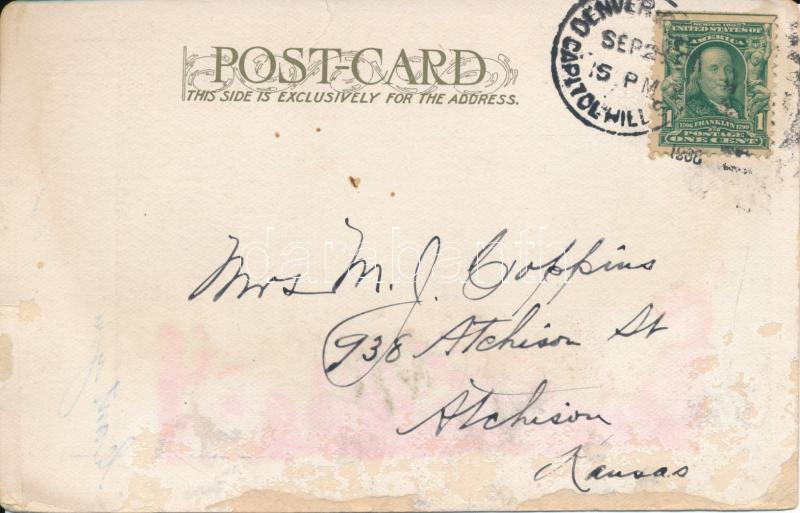 POST-CARD
THIS SIDE IS EXCLUSIVELY FOR THE ADDRESS.
DENVER
CAPITOL HILL
SEP 2
5 PM
SERIES 1902
UNITED STATES OF
AMERICA
1706 FRANKLIN 1790
1 POSTAGE 1
ONE CENT
Mrs M. J. Coppins
938 Atchison St
Atchison
Kansas
darabanth